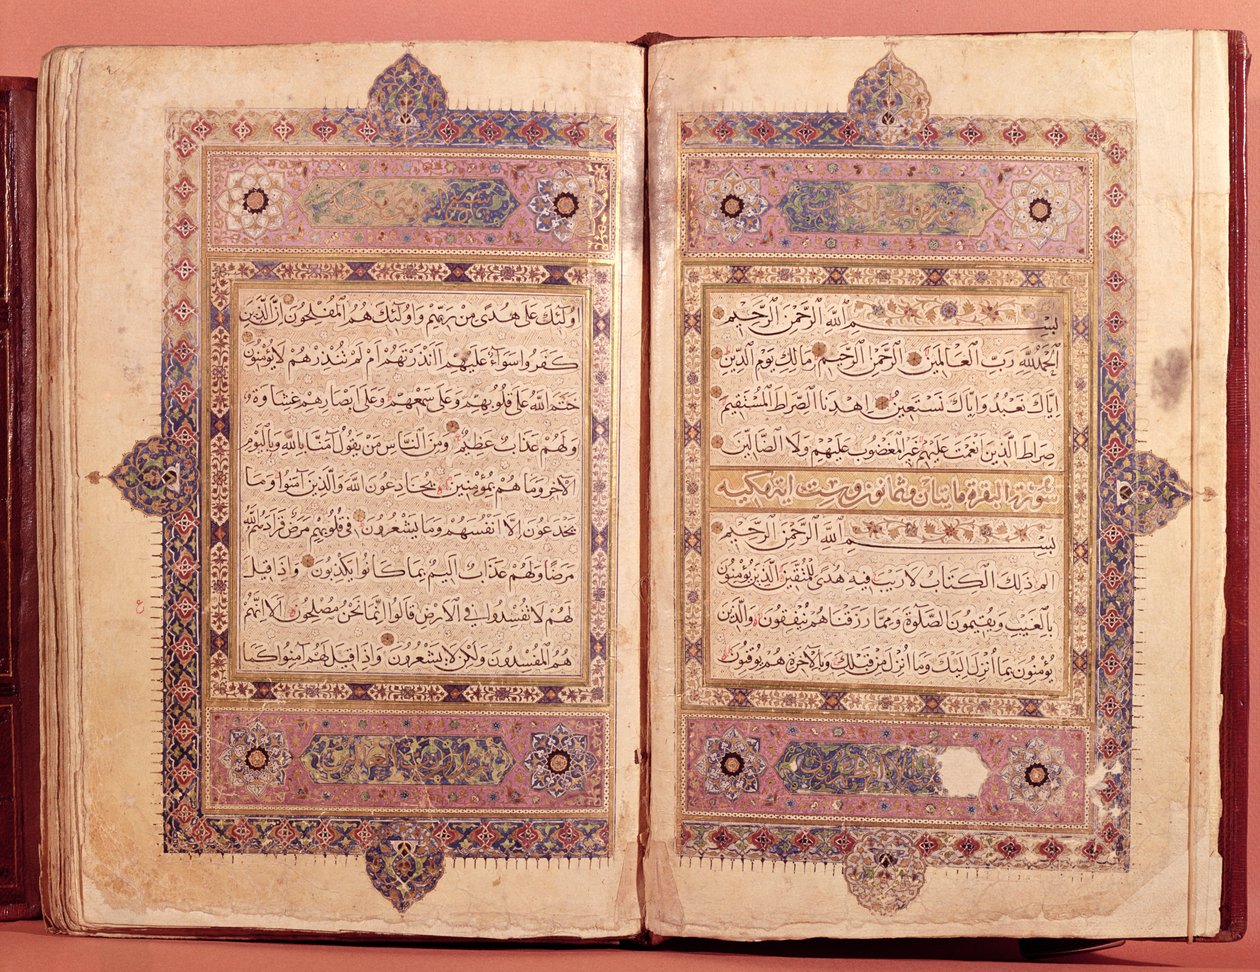 بِسْمِ اللهِ الرَّحْمٰنِ الرَّحِيْمِ
اَلْحَمْدُ لِلهِ رَبِّ الْعَالَمِيْنَ الرَّحْمٰنِ الرَّحِيْمِ مَالِكِ يَوْمِ الدِّيْنِ
اِيَّاكَ نَعْبُدُ وَاِيَّاكَ نَسْتَعِيْنُ اِهْدِنَا الصِّرَاطَ الْمُسْتَقِيْمَ
صِرَاطَ الَّذِيْنَ اَنْعَمْتَ عَلَيْهِمْ غَيْرِ الْمَغْضُوْبِ عَلَيْهِمْ وَلَا الضَّالِّيْنَ
سورة البقرة مائتان وثمانون وست اية مكية
بِسْمِ اللهِ الرَّحْمٰنِ الرَّحِيْمِ
الم ذٰلِكَ الْكِتَابُ لَا رَيْبَ فِيْهِ هُدًى لِلْمُتَّقِيْنَ الَّذِيْنَ يُؤْمِنُوْنَ
بِالْغَيْبِ وَيُقِيْمُوْنَ الصَّلٰوةَ وَمِمَّا رَزَقْنَاهُمْ يُنْفِقُوْنَ وَالَّذِيْنَ
يُؤْمِنُوْنَ بِمَا اُنْزِلَ اِلَيْكَ وَمَا اُنْزِلَ مِنْ قَبْلِكَ وَبِالْاٰخِرَةِ هُمْ يُوْقِنُوْنَ
اُولٰئِكَ عَلٰى هُدًى مِنْ رَبِّهِمْ وَاُولٰئِكَ هُمُ الْمُفْلِحُوْنَ اِنَّ الَّذِيْنَ
كَفَرُوْا سَوَاءٌ عَلَيْهِمْ ءَاَنْذَرْتَهُمْ اَمْ لَمْ تُنْذِرْهُمْ لَا يُؤْمِنُوْنَ
خَتَمَ اللهُ عَلٰى قُلُوْبِهِمْ وَعَلٰى سَمْعِهِمْ وَعَلٰى اَبْصَارِهِمْ غِشَاوَةٌ
وَلَهُمْ عَذَابٌ عَظِيْمٌ وَمِنَ النَّاسِ مَنْ يَقُوْلُ اٰمَنَّا بِاللهِ وَبِالْيَوْمِ
الْاٰخِرِ وَمَا هُمْ بِمُؤْمِنِيْنَ يُخَادِعُوْنَ اللهَ وَالَّذِيْنَ اٰمَنُوْا وَمَا
يَخْدَعُوْنَ اِلَّا اَنْفُسَهُمْ وَمَا يَشْعُرُوْنَ فِيْ قُلُوْبِهِمْ مَرَضٌ فَزَادَهُمُ اللهُ
مَرَضًا وَلَهُمْ عَذَابٌ اَلِيْمٌ بِمَا كَانُوْا يَكْذِبُوْنَ وَاِذَا قِيْلَ
لَهُمْ لَا تُفْسِدُوْا فِي الْاَرْضِ قَالُوْا اِنَّمَا نَحْنُ مُصْلِحُوْنَ اَلَا اِنَّهُمْ
هُمُ الْمُفْسِدُوْنَ وَلٰكِنْ لَا يَشْعُرُوْنَ وَاِذَا قِيْلَ لَهُمْ اٰمِنُوْا كَمَا